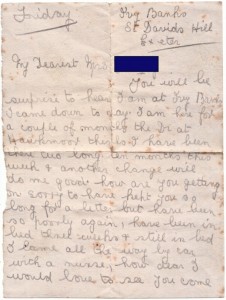 Friday
Ivy Banks
St Davids Hill
Exeter
My Dearest Mrs
You will be
surprise to hear I am at Ivy Bank
I came down to day I am here for
a couple of months the Dr at
Hawkmoor thinks I have been
there two long ten months this
week & another change will
do me good how are you getting
on sorry to have kept you so
long for a letter but have been
so poorly again, have been in
bed weeks & still in bed
I came all the way by car
with a nurse, how dear I
would love to see you come